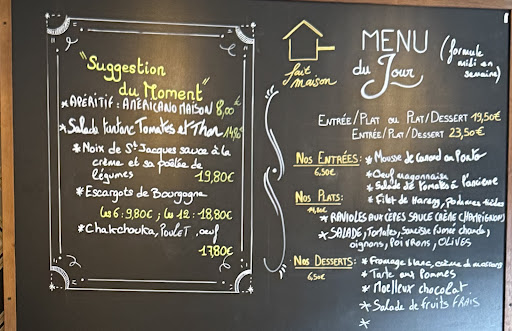 "Suggestion
du Moment"
* APÉRITIF : AMÉRICANO MAISON 8,00€
* Salade Tomates et Thon
* Noix de St Jacques sauce à la
crème et sa poêlée de
légumes 19,80€
* Escargots de Bourgogne
les 6 : 9,80€ ; les 12 : 18,80€
* Chakchouka, Poulet, oeuf
17,80€
fait
maison
MENU
du Jour
(formule
midi en
semaine)
ENTRÉE/PLAT ou PLAT/DESSERT 19,50€
ENTRÉE/PLAT/DESSERT 23,50€
Nos ENTRÉES: * Mousse de Canard au Porto
6,50€
* Oeuf mayonnaise
* Salade de Tomates à l'ancienne
* Filet de Hareng, Pommes tièdes
Nos PLATS:
* RAVIOLES AUX CÈPES SAUCE CRÈME CHAMPIGNONS
* SALADE, Tomates, Saucisse fumée chaude,
oignons, POIVRONS, OLIVES
Nos DESSERTS: * Fromage blanc, crème de marrons
6,50€
* Tarte aux Pommes
* Moelleux chocolat
* Salade de fruits FRAIS
*